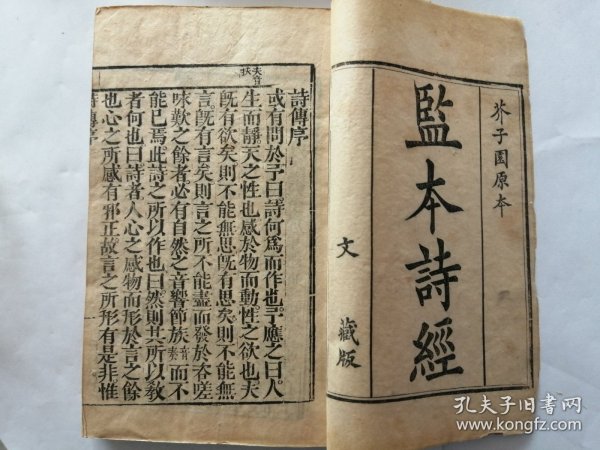 芥子園原本
監本詩經
文 藏版
夫音扶
詩傳序
或有問於予曰詩何爲而作也。予應之曰。人
生而靜天之性也感於物而動性之欲也夫
旣有欲矣則不能無思旣有思矣則不能無
言。旣有言矣則言之所不能盡而發於咨嗟
味歎之餘者必有自然之音響節族音奏而不
能已焉此詩之所以作也曰然則其所以敎
者何也曰詩者人心之感物而形於言之餘
也心之所感有邪正故言之所形有是非惟
詩傳序
孔夫子旧書网
www.kongfz.com